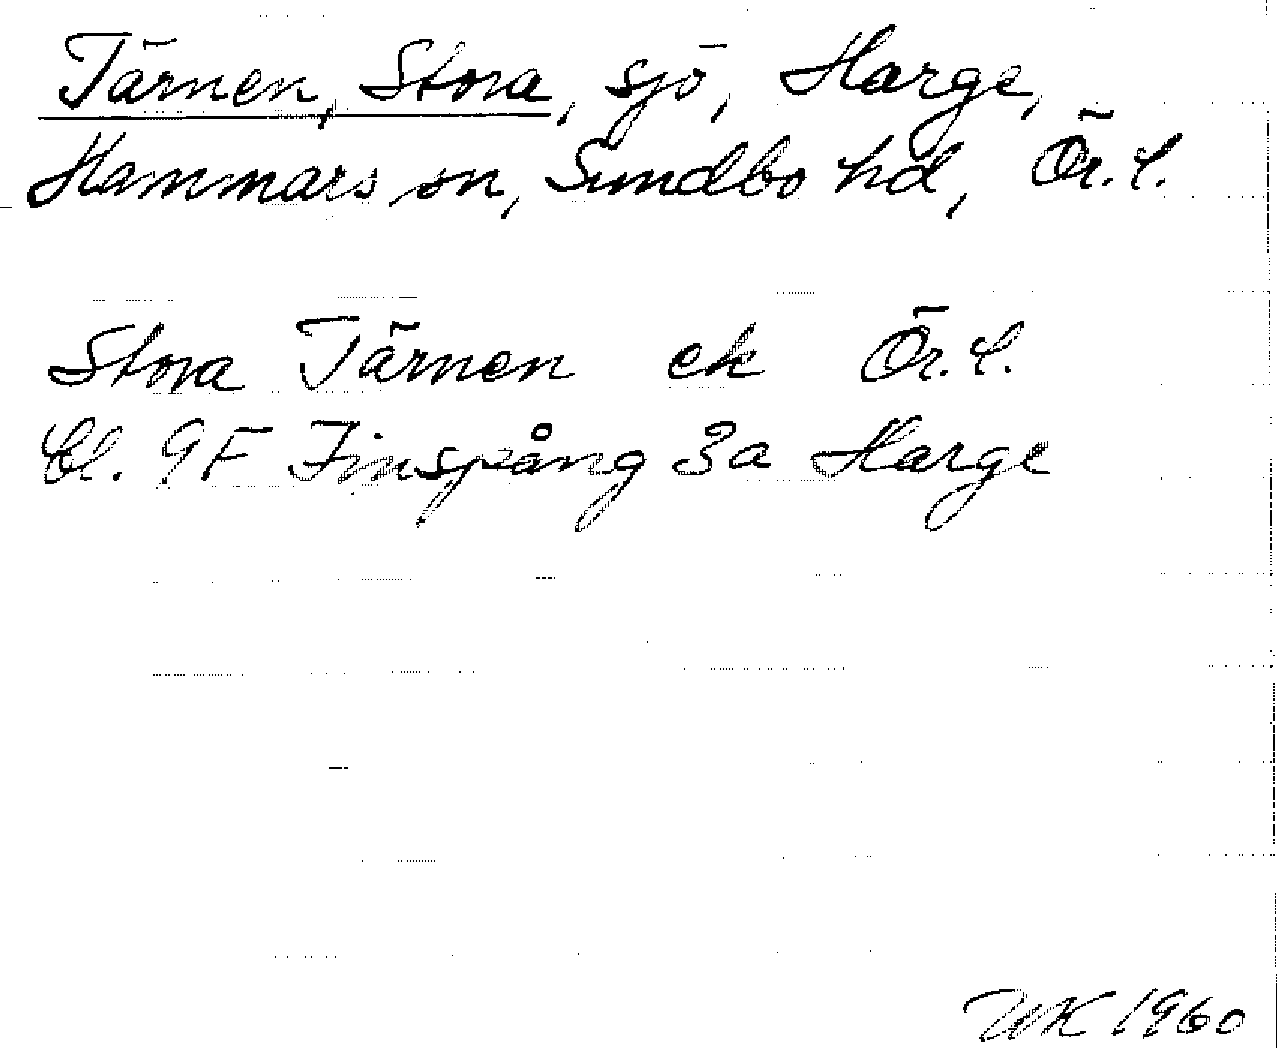 Tärnen, Stora, sjö, Harge,
Hammars sn, Sundbo hd, Ör.l.
Stora Tärnen ek Ör.l.
Bl. 9F Finspång 3a Harge
WK 1960